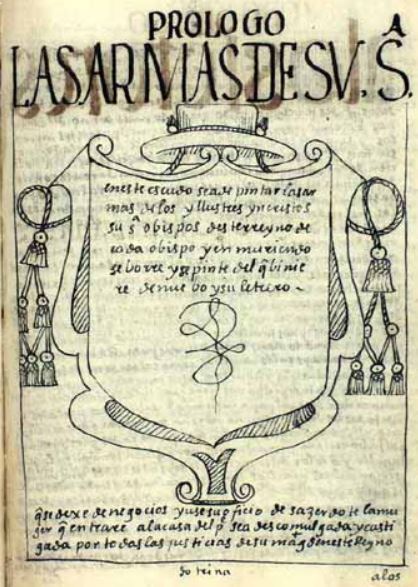 PROLOGO
LAS ARMAS DE SV. S.ᴬ
en este escudo sea de pintar las ar
mas de los yllustres yn cristos
su sª obispos deste rreyno de
cada obispo y en muriendo
se borre y se pinte del q̃ binie
re de nuebo y su letrero ~
q̃ se dexe de negocios y use su oficio de sazerdote la mu
ger q̃ entrare a la casa del pᵉ sea descomulgada y casti
gada por todas las justicias de su magᵈ en este rreyno
do trina
a los